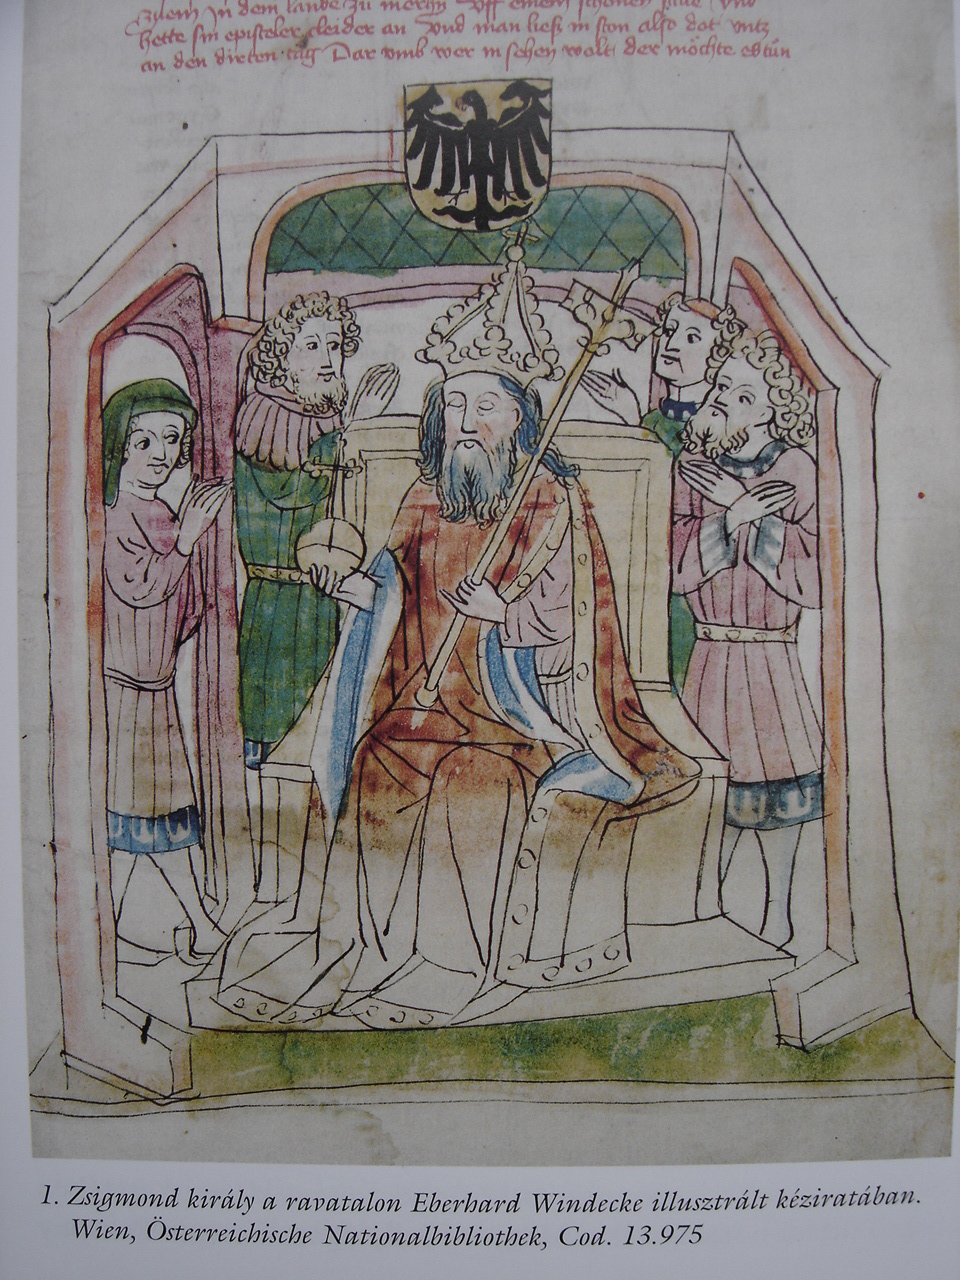 zuem in dem lande zu merhn Uff einem schonen
hette sin episteler cleider an Vnd man ließ in ston also dot vntz
an den dirten tag Dar vmb wer in sehen wolt der möchte es tün
1. Zsigmond király a ravatalon Eberhard Windecke illusztrált kéziratában.
Wien, Österreichische Nationalbibliothek, Cod. 13.975